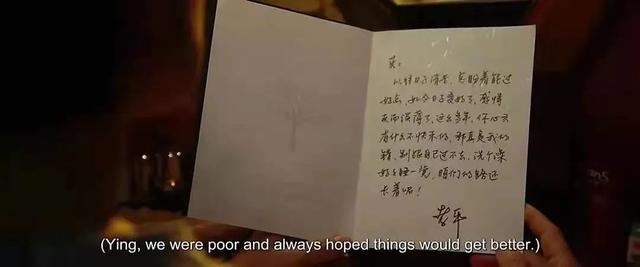 英：
以往日子清苦，总盼着能过
好点，如今日子变好了，感情
反而淡薄了，这么多年，你心里
有什么不快乐的，那真是我的
错，别跟自己过不去，洗个澡
好好睡一觉，咱们的路还
长着呢！
(Ying, we were poor and always hoped things would get better.)